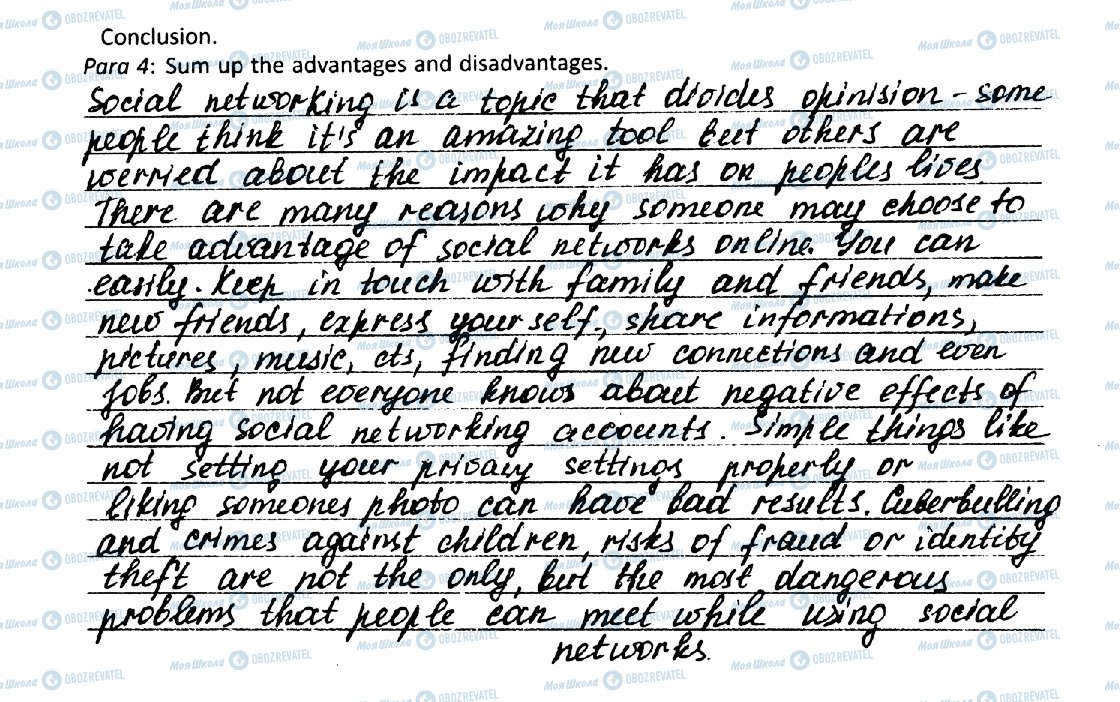 Conclusion.
Para 4: Sum up the advantages and disadvantages.
Social networking is a topic that divides opinision - some
people think it's an amazing tool but others are
worried about the impact it has on peoples lives.
There are many reasons why someone may choose to
take advantage of social networks online. You can
easily. Keep in touch with family and friends, make
new friends, express your self, share informations,
pictures, music, cts, finding new connections and even
jobs. But not everyone knows about negative effects of
having social networking accounts. Simple things like
not setting your privacy settings properly or
liking someones photo can have bad results. Cuberbulling
and crimes against children, risks of fraud or identity
theft are not the only, but the most dangerous
problems that people can meet while using social
networks.